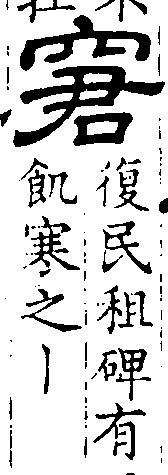 窘
復民租碑有
飢寒之丨